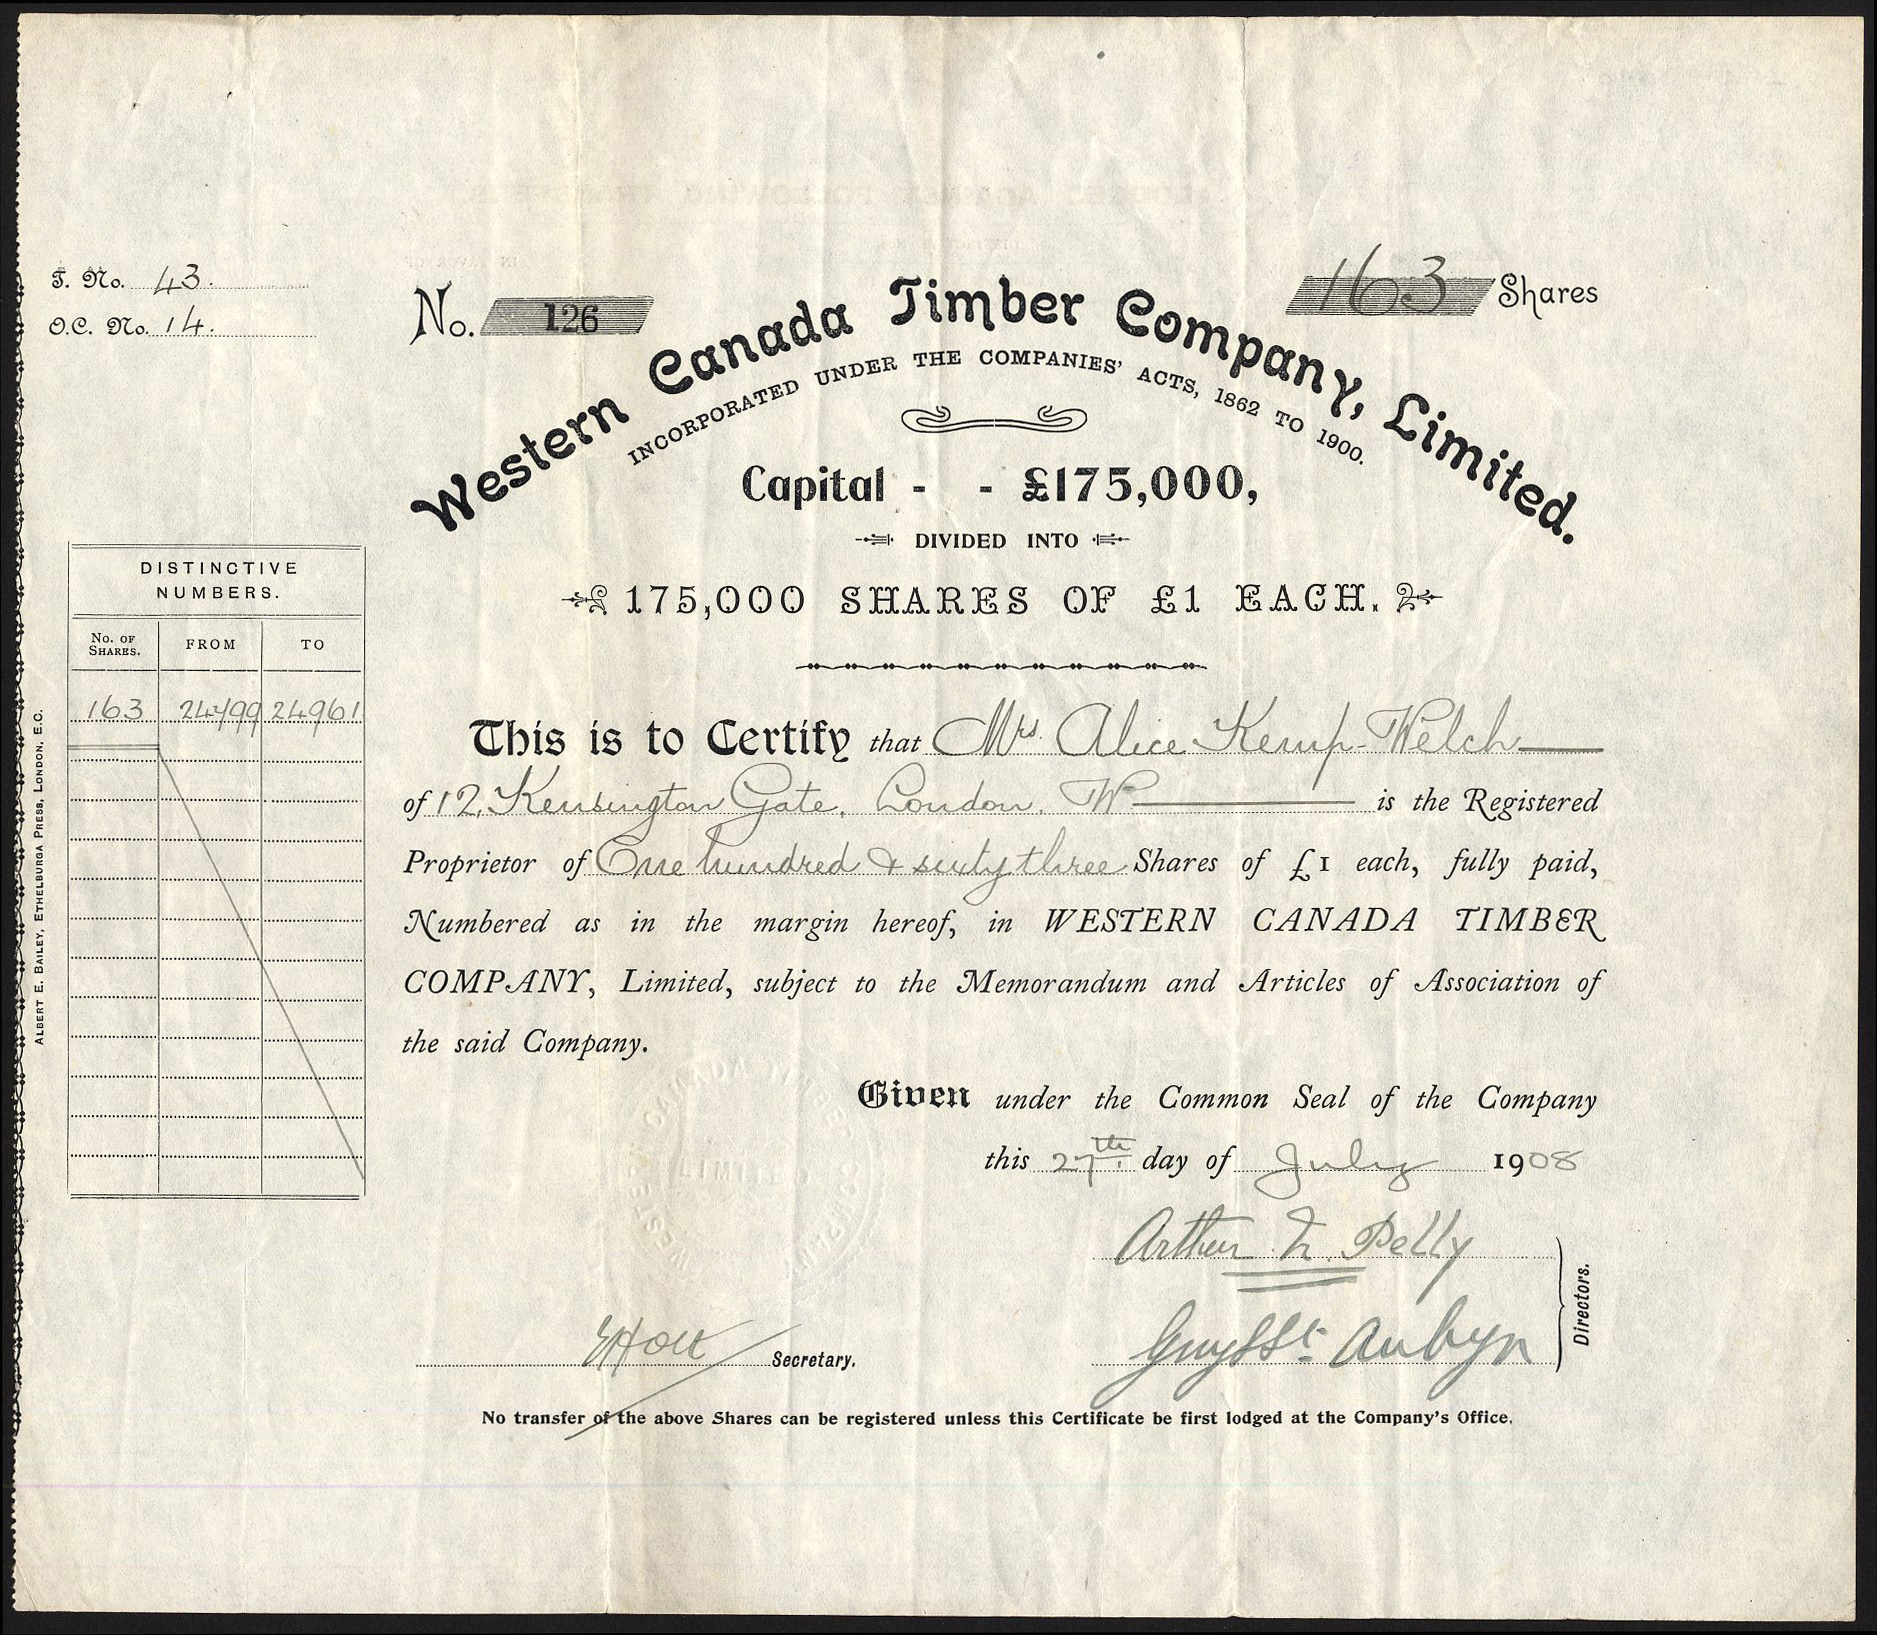 T. No. 43.
O.C. No. 14.
No. 126
163 Shares
Western Canada Timber Company, Limited.
INCORPORATED UNDER THE COMPANIES' ACTS, 1862 TO 1900.
Capital - - £175,000,
DIVIDED INTO
175,000 SHARES OF £1 EACH.
DISTINCTIVE
NUMBERS.
No. OF SHARES. FROM TO
163 24799 24961
ALBERT E. BAILEY, ETHELBURGA PRESS, LONDON, E.C.
This is to Certify that Mrs. Alice Kemp-Welch
of 12, Kensington Gate, London, W. is the Registered
Proprietor of One hundred & sixty three Shares of £1 each, fully paid,
Numbered as in the margin hereof, in WESTERN CANADA TIMBER
COMPANY, Limited, subject to the Memorandum and Articles of Association of
the said Company.
Given under the Common Seal of the Company
this 27th. day of July 1908
Arthur Pelly
Guy St. Aubyn
Directors.
Holt Secretary.
No transfer of the above Shares can be registered unless this Certificate be first lodged at the Company's Office.